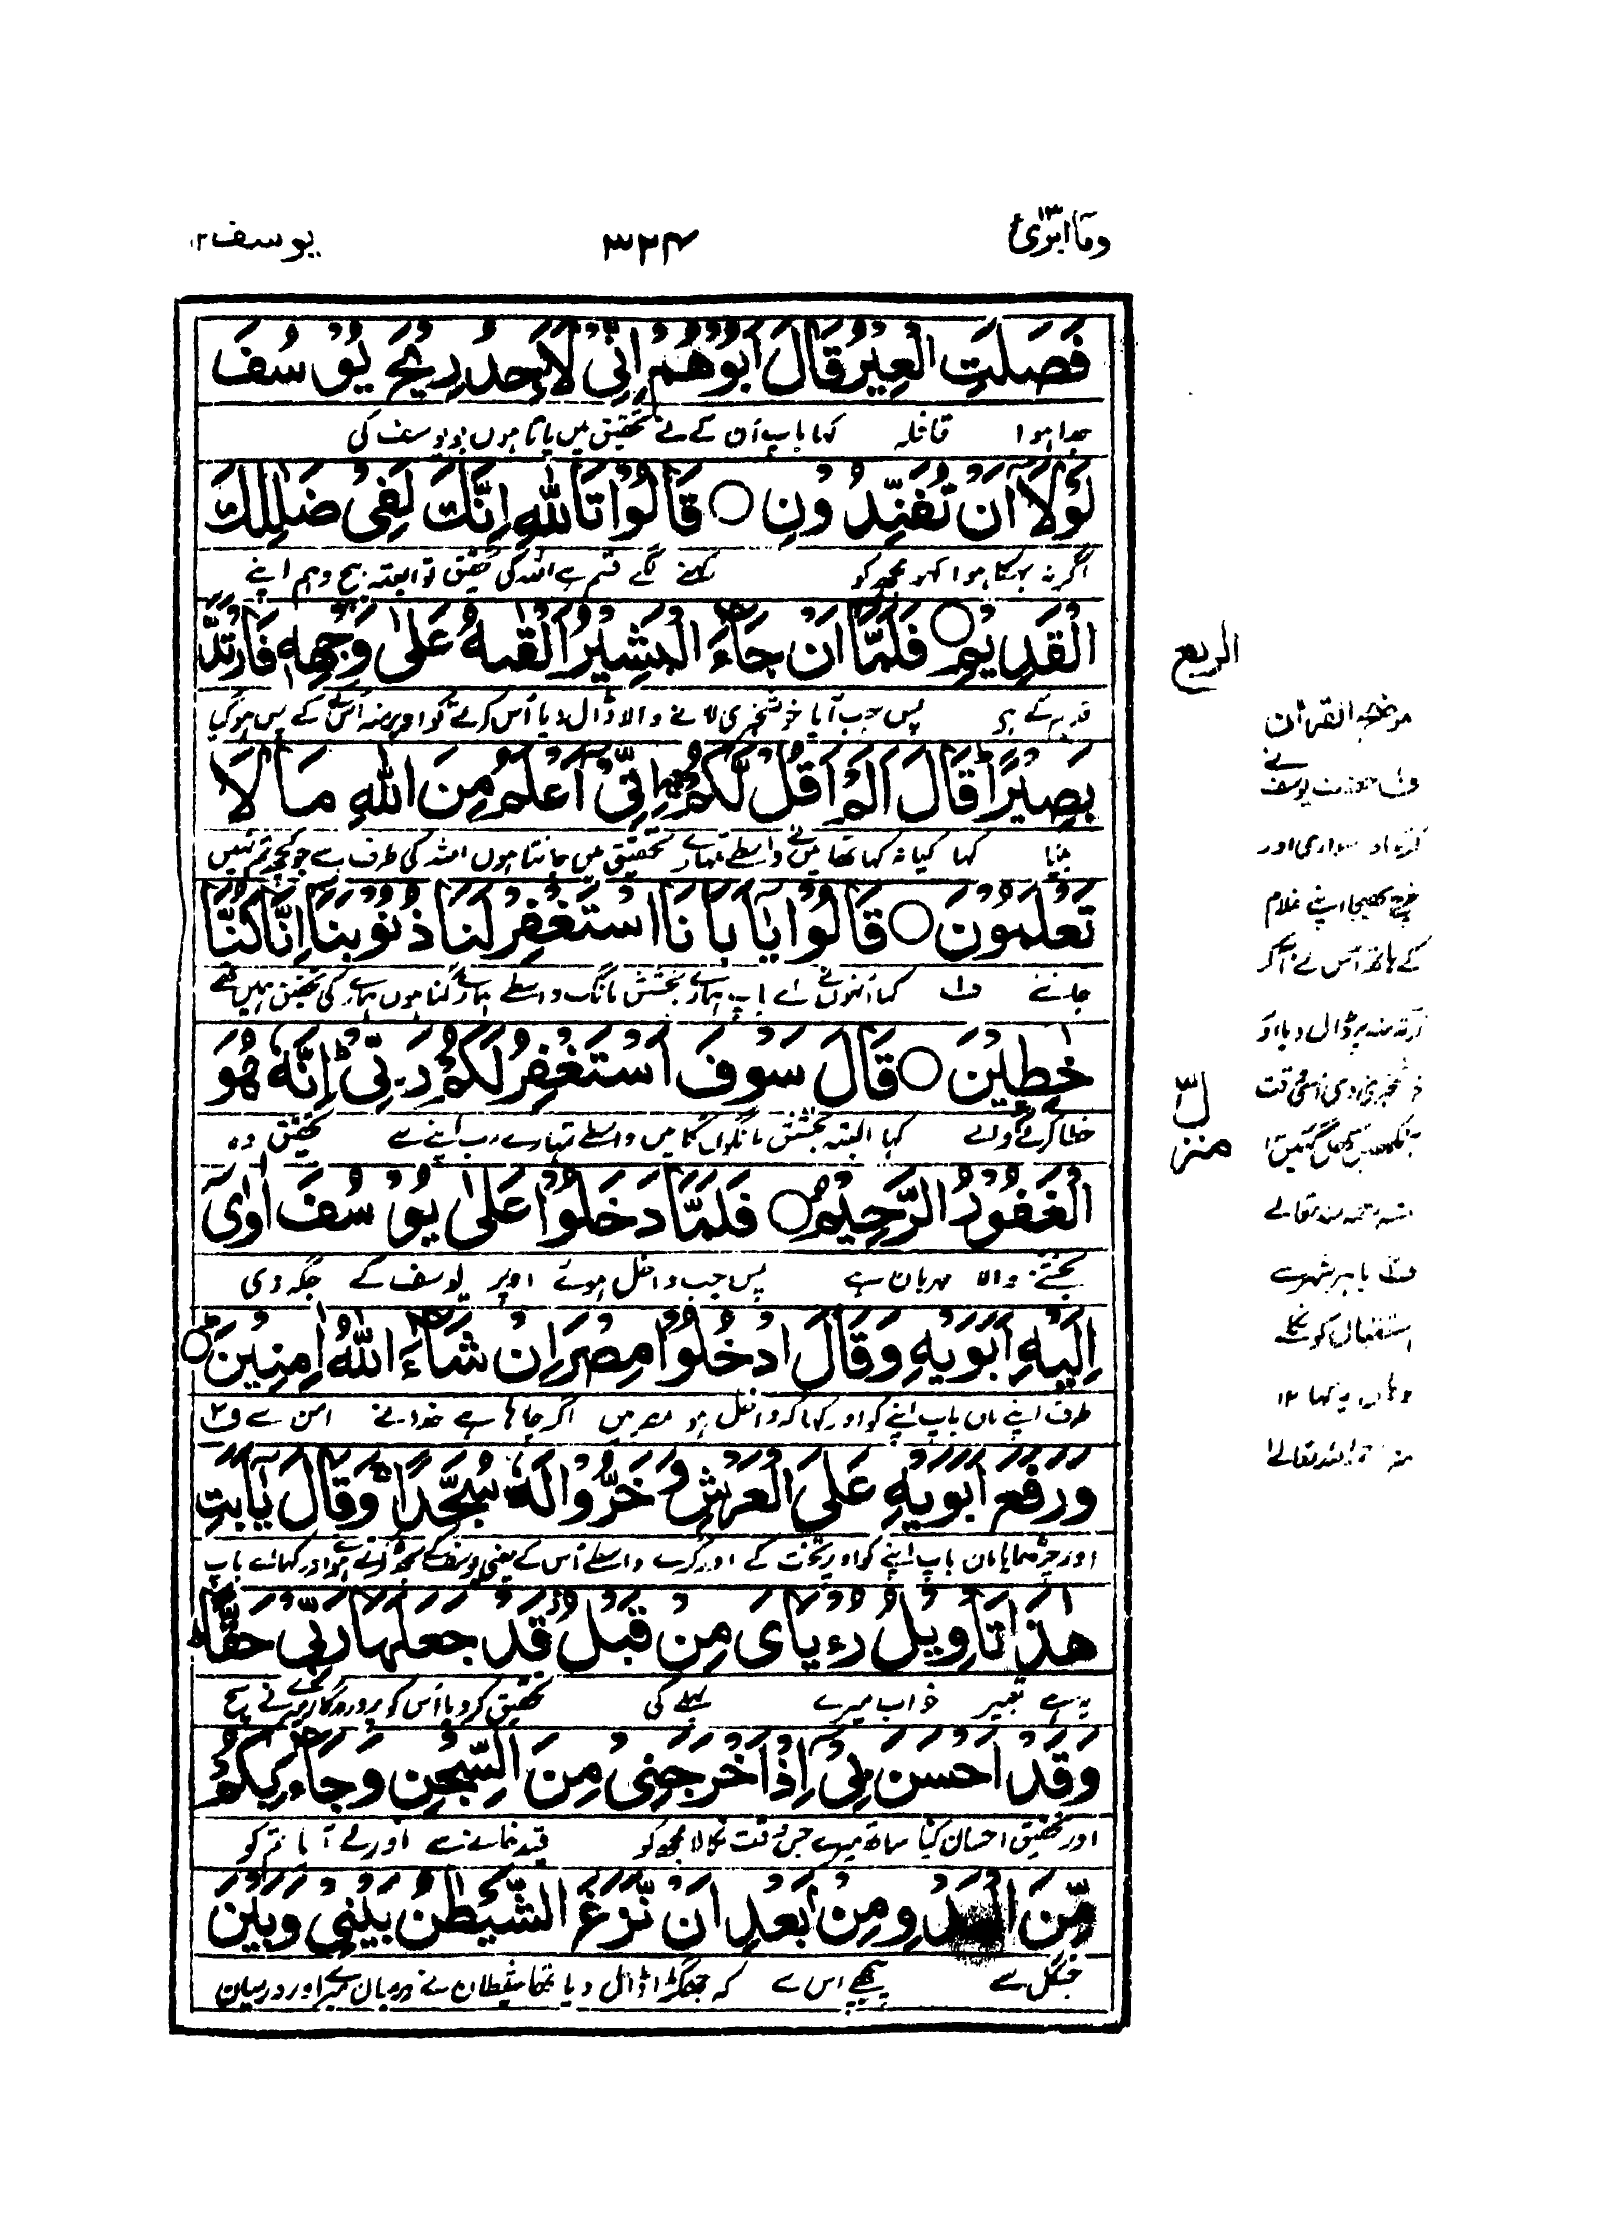 وما ابرئ ١٣
٣٢٤
يوسف ١٢
فَصَلَتِ الْعِيْرُ قَالَ اَبُوْهُمْ اِنِّيْ لَاَجِدُ رِيْحَ يُوْسُفَ
جدا ہوا قافلہ کہا باپ اُن کے نے تحقیق میں پاتا ہوں بو یوسف کی
لَوْلَاۤ اَنْ تُفَنِّدُوْنِ ○ قَالُوْا تَاللّٰهِ اِنَّكَ لَفِيْ ضَلٰلِكَ
اگر نہ بہکا ہوا کہو مجھ کو کہنے لگے قسم ہے اللہ کی تحقیق تو البتہ بیچ وہم اپنے
الْقَدِيْمِ ○ فَلَمَّاۤ اَنْ جَآءَ الْبَشِيْرُ اَلْقٰىهُ عَلٰى وَجْهِهٖ فَارْتَدَّ
قدیم کے ہے پس جب آیا خوشخبری لانے والا ڈال دیا اُس کرتے کو اوپر منہ اُس کے پس ہو گیا
بَصِيْرًا قَالَ اَلَمْ اَقُلْ لَّكُمْ اِنِّيْۤ اَعْلَمُ مِنَ اللّٰهِ مَا لَا
بینا کہا کیا نہ کہا تھا میں نے واسطے تمہارے تحقیق میں جانتا ہوں اللہ کی طرف سے جو کچھ تم نہیں
تَعْلَمُوْنَ ○ قَالُوْا يٰۤاَبَانَا اسْتَغْفِرْ لَنَا ذُنُوْبَنَاۤ اِنَّا كُنَّا
جانتے ف١ کہا اُنہوں نے اے باپ ہمارے بخشش مانگ واسطے ہمارے گناہوں ہمارے کی تحقیق ہم ہیں تھے
خٰطِـِٕيْنَ ○ قَالَ سَوْفَ اَسْتَغْفِرُ لَكُمْ رَبِّيْ اِنَّهٗ هُوَ
خطا کرنے والے کہا البتہ بخشش مانگوں گا میں واسطے تمہارے رب اپنے سے تحقیق وہ
الْغَفُوْرُ الرَّحِيْمُ ○ فَلَمَّا دَخَلُوْا عَلٰى يُوْسُفَ اٰوٰۤى
بخشنے والا مہربان ہے پس جب داخل ہوئے اوپر یوسف کے جگہ دی
اِلَيْهِ اَبَوَيْهِ وَقَالَ ادْخُلُوْا مِصْرَ اِنْ شَآءَ اللّٰهُ اٰمِنِيْنَ ○
طرف اپنے ماں باپ اپنے کو اور کہا کہ داخل ہو مصر میں اگر چاہا ہے خدا نے امن سے ف٢
وَرَفَعَ اَبَوَيْهِ عَلَى الْعَرْشِ وَخَرُّوْا لَهٗ سُجَّدًا وَقَالَ يٰۤاَبَتِ
اور چڑھایا ماں باپ اپنے کو اوپر تخت کے اور گرے واسطے اُس کے یعنی یوسف کے سجدہ کرتے ہوئے اور کہا اے باپ
هٰذَا تَاْوِيْلُ رُءْيَايَ مِنْ قَبْلُ قَدْ جَعَلَهَا رَبِّيْ حَقًّا
یہ ہے تعبیر خواب میرے پہلے کی تحقیق کر دیا اُس کو پروردگار میرے نے سچ
وَقَدْ اَحْسَنَ بِيْۤ اِذْ اَخْرَجَنِيْ مِنَ السِّجْنِ وَجَآءَ بِكُمْ
اور تحقیق احسان کیا ساتھ میرے جس وقت نکالا مجھ کو قید خانے سے اور لے آیا تم کو
مِّنَ الْبَدْوِ مِنْ بَعْدِ اَنْ نَّزَغَ الشَّيْطٰنُ بَيْنِيْ وَبَيْنَ
جنگل سے پیچھے اس سے کہ جھگڑا ڈال دیا تھا شیطان نے درمیان میرے اور درمیان
الربع
موضح القرآن
ف١ حضرت یوسف نے
سواری اور
خرچ بھیجا اپنے غلام
کے ہاتھ اُس نے آ کر
کرتہ منہ پر ڈال دیا اور
خوشخبری دی اُسی وقت
آنکھیں کھل گئیں ١٢
منہ رحمہ اللہ تعالیٰ
ف٢ باہر شہر سے
استقبال کو نکلے
وہاں یہ کہا ١٢
منہ رحمہ اللہ تعالیٰ
منزل ٣